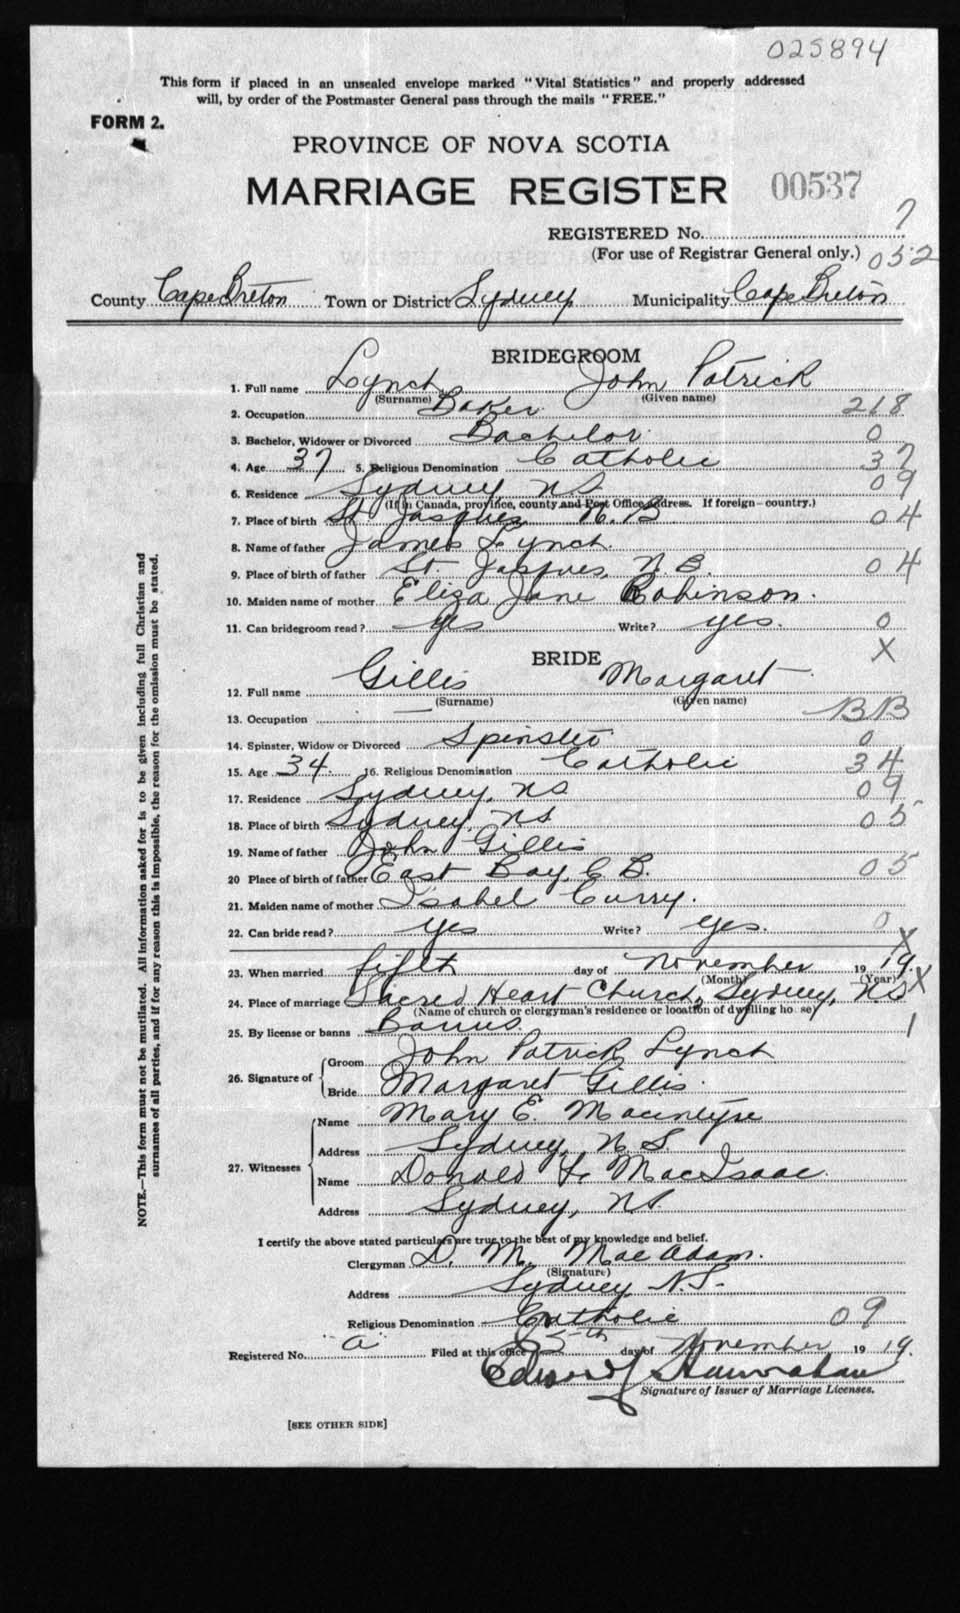 025894
This form if placed in an unsealed envelope marked "Vital Statistics" and properly addressed
will, by order of the Postmaster General pass through the mails "FREE."
FORM 2.
PROVINCE OF NOVA SCOTIA
MARRIAGE REGISTER 00537
REGISTERED No. 7
(For use of Registrar General only.) 052
County Cape Breton Town or District Sydney Municipality Cape Breton
BRIDEGROOM
1. Full name Lynch John Patrick
(Surname) (Given name)
2. Occupation Baker 218
3. Bachelor, Widower or Divorced Bachelor 0
4. Age 37 5. Religious Denomination Catholic 37
6. Residence Sydney NS 09
(If in Canada, province, county and Post Office address. If foreign—country.)
7. Place of birth St. Jasques N.B 04
8. Name of father James Lynch.
9. Place of birth of father St. Jasques, N.B. 04
10. Maiden name of mother Eliza Jane Robinson.
11. Can bridegroom read? yes Write? yes. 0
BRIDE X
12. Full name Gillis Margaret
(Surname) (Given name)
13. Occupation — BB
14. Spinster, Widow or Divorced Spinster 0
15. Age 34. 16. Religious Denomination Catholic 34
17. Residence Sydney, NS 09
18. Place of birth Sydney, NS 05
19. Name of father John Gillis
20 Place of birth of father East Bay, C.B. 05
21. Maiden name of mother Isabel Curry.
22. Can bride read? yes Write? yes. 0
X
23. When married fifth day of November 19 19
(Month) (Year) X
24. Place of marriage Sacred Heart Church, Sydney, NS
(Name of church or clergyman's residence or location of dwelling house)
25. By license or banns Banns 1
26. Signature of Groom John Patrick Lynch
Bride Margaret Gillis.
27. Witnesses Name Mary E. Macintyre
Address Sydney, N.S.
Name Donald F. MacIsaac.
Address Sydney, NS.
I certify the above stated particulars are true to the best of my knowledge and belief.
Clergyman D. M. MacAdam.
(Signature)
Address Sydney N.S.
Religious Denomination Catholic 09
Registered No. "a" Filed at this office 5th day of November 19 19.
Edward J Hanrahan
Signature of Issuer of Marriage Licenses.
[SEE OTHER SIDE]
NOTE.—This form must not be mutilated. All information asked for is to be given including full Christian and
surnames of all parties, and if for any reason this is impossible, the reason for the omission must be stated.